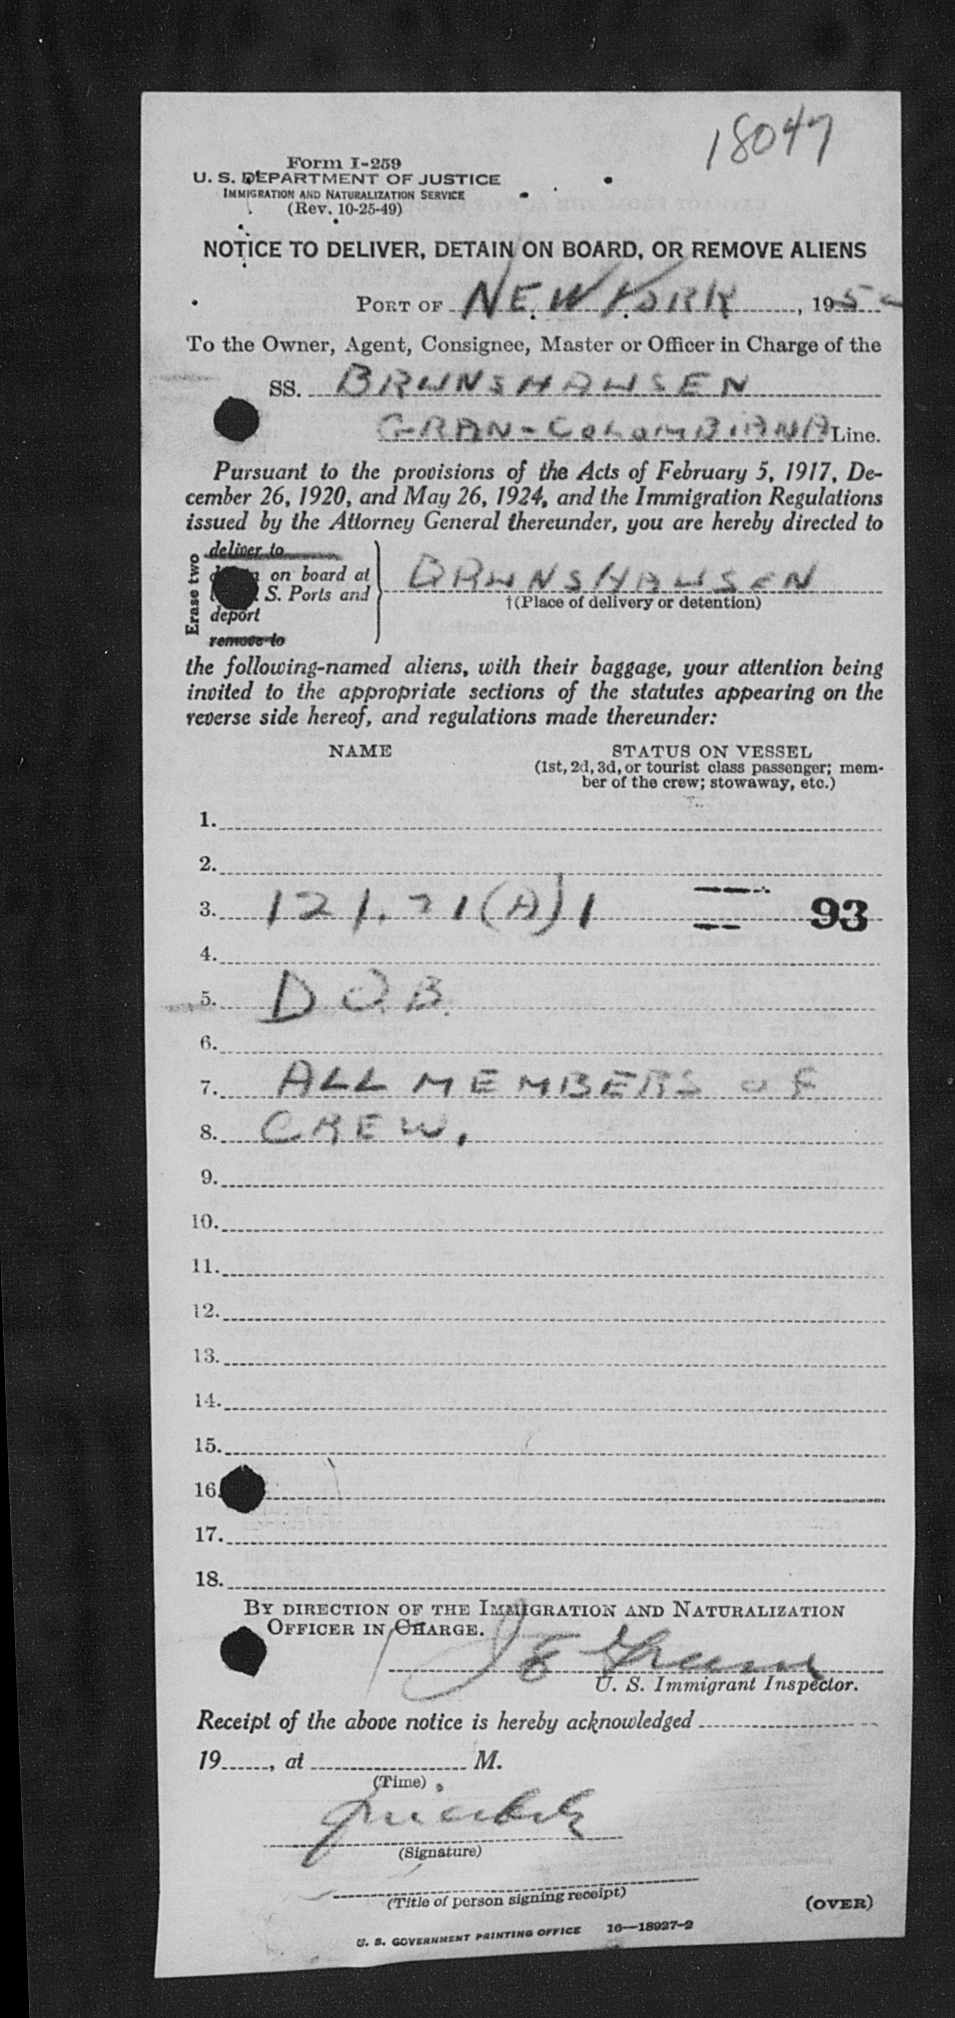 18047
Form I-259
U. S. DEPARTMENT OF JUSTICE
IMMIGRATION AND NATURALIZATION SERVICE
(Rev. 10-25-49)
NOTICE TO DELIVER, DETAIN ON BOARD, OR REMOVE ALIENS
PORT OF NEW YORK, 1952
To the Owner, Agent, Consignee, Master or Officer in Charge of the
SS. BRUNSHAUSEN
GRAN-COLOMBIANA Line.
Pursuant to the provisions of the Acts of February 5, 1917, De-
cember 26, 1920, and May 26, 1924, and the Immigration Regulations
issued by the Attorney General thereunder, you are hereby directed to
Erase two
deliver to
on board at
S. Ports and
deport
remove to
BRUNSHAUSEN
†(Place of delivery or detention)
the following-named aliens, with their baggage, your attention being
invited to the appropriate sections of the statutes appearing on the
reverse side hereof, and regulations made thereunder:
NAME STATUS ON VESSEL
(1st, 2d, 3d, or tourist class passenger; mem-
ber of the crew; stowaway, etc.)
1.
2.
3. 121.21(A)1 93
4.
5. D.O.B.
6.
7. ALL MEMBERS OF
8. CREW.
9.
10.
11.
12.
13.
14.
15.
16.
17.
18.
BY DIRECTION OF THE IMMIGRATION AND NATURALIZATION
OFFICER IN CHARGE.
U. S. Immigrant Inspector.
Receipt of the above notice is hereby acknowledged
19, at M.
(Time)
(Signature)
(Title of person signing receipt)
(OVER)
U. S. GOVERNMENT PRINTING OFFICE 16—18927-2